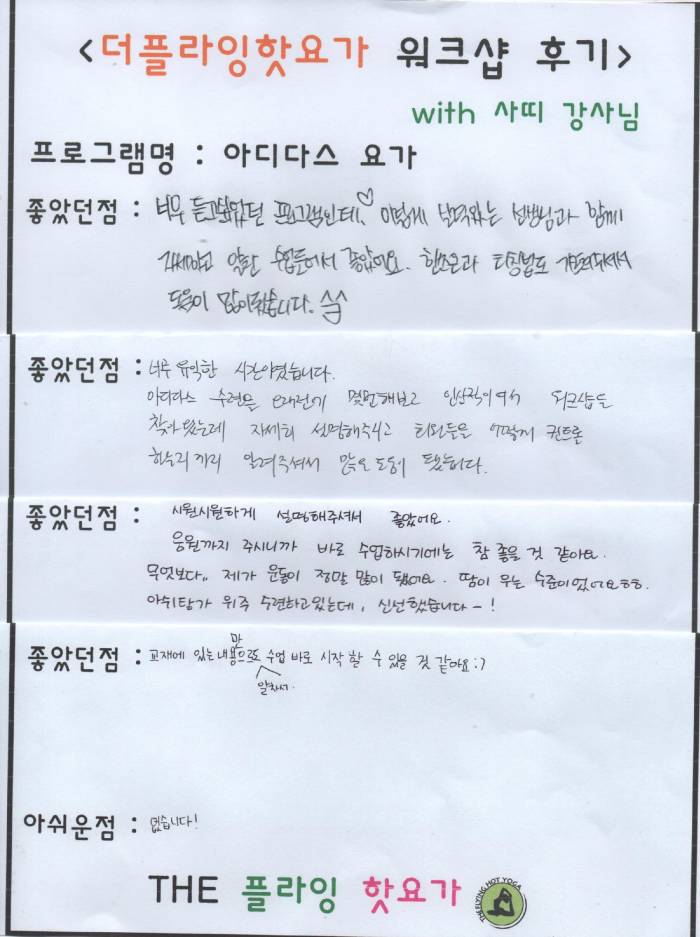 <더플라잉핫요가 워크샵 후기>
with 사띠 강사님
프로그램명 : 아디다스 요가
좋았던점 : 너무 듣고싶었던 프로그램인데♡ 이렇게 선생님과 함께
수업들어서 좋았어요. 핸즈온과 티칭법도
도움이 많이됐습니다.
좋았던점 : 너무 유익한 시간이였습니다.
아디다스 수련은 예전에 몇번해보고 인상적이여서 워크샵을
찾아 왔는데 자세히 설명해주시고 회원들을 어떻게 컨트롤
하는지까지 알려주셔서 많은 도움이 됐습니다.
좋았던점 : 시원시원하게 설명해주셔서 좋았어요.
음원까지 주시니까 바로 수업하시기에는 참 좋을 것 같아요.
무엇보다.. 제가 운동이 정말 많이 됐어요. 땀이 우는 수준이었어요ㅎㅎ.
아쉬탕가 위주 수련하고있는데, 신선했습니다~!
좋았던점 : 교재에 있는 내용만으로도 알차서 수업 바로 시작 할 수 있을 것 같아요:)
아쉬운점 : 없습니다!
THE 플라잉 핫요가
THE FLYING HOT YOGA